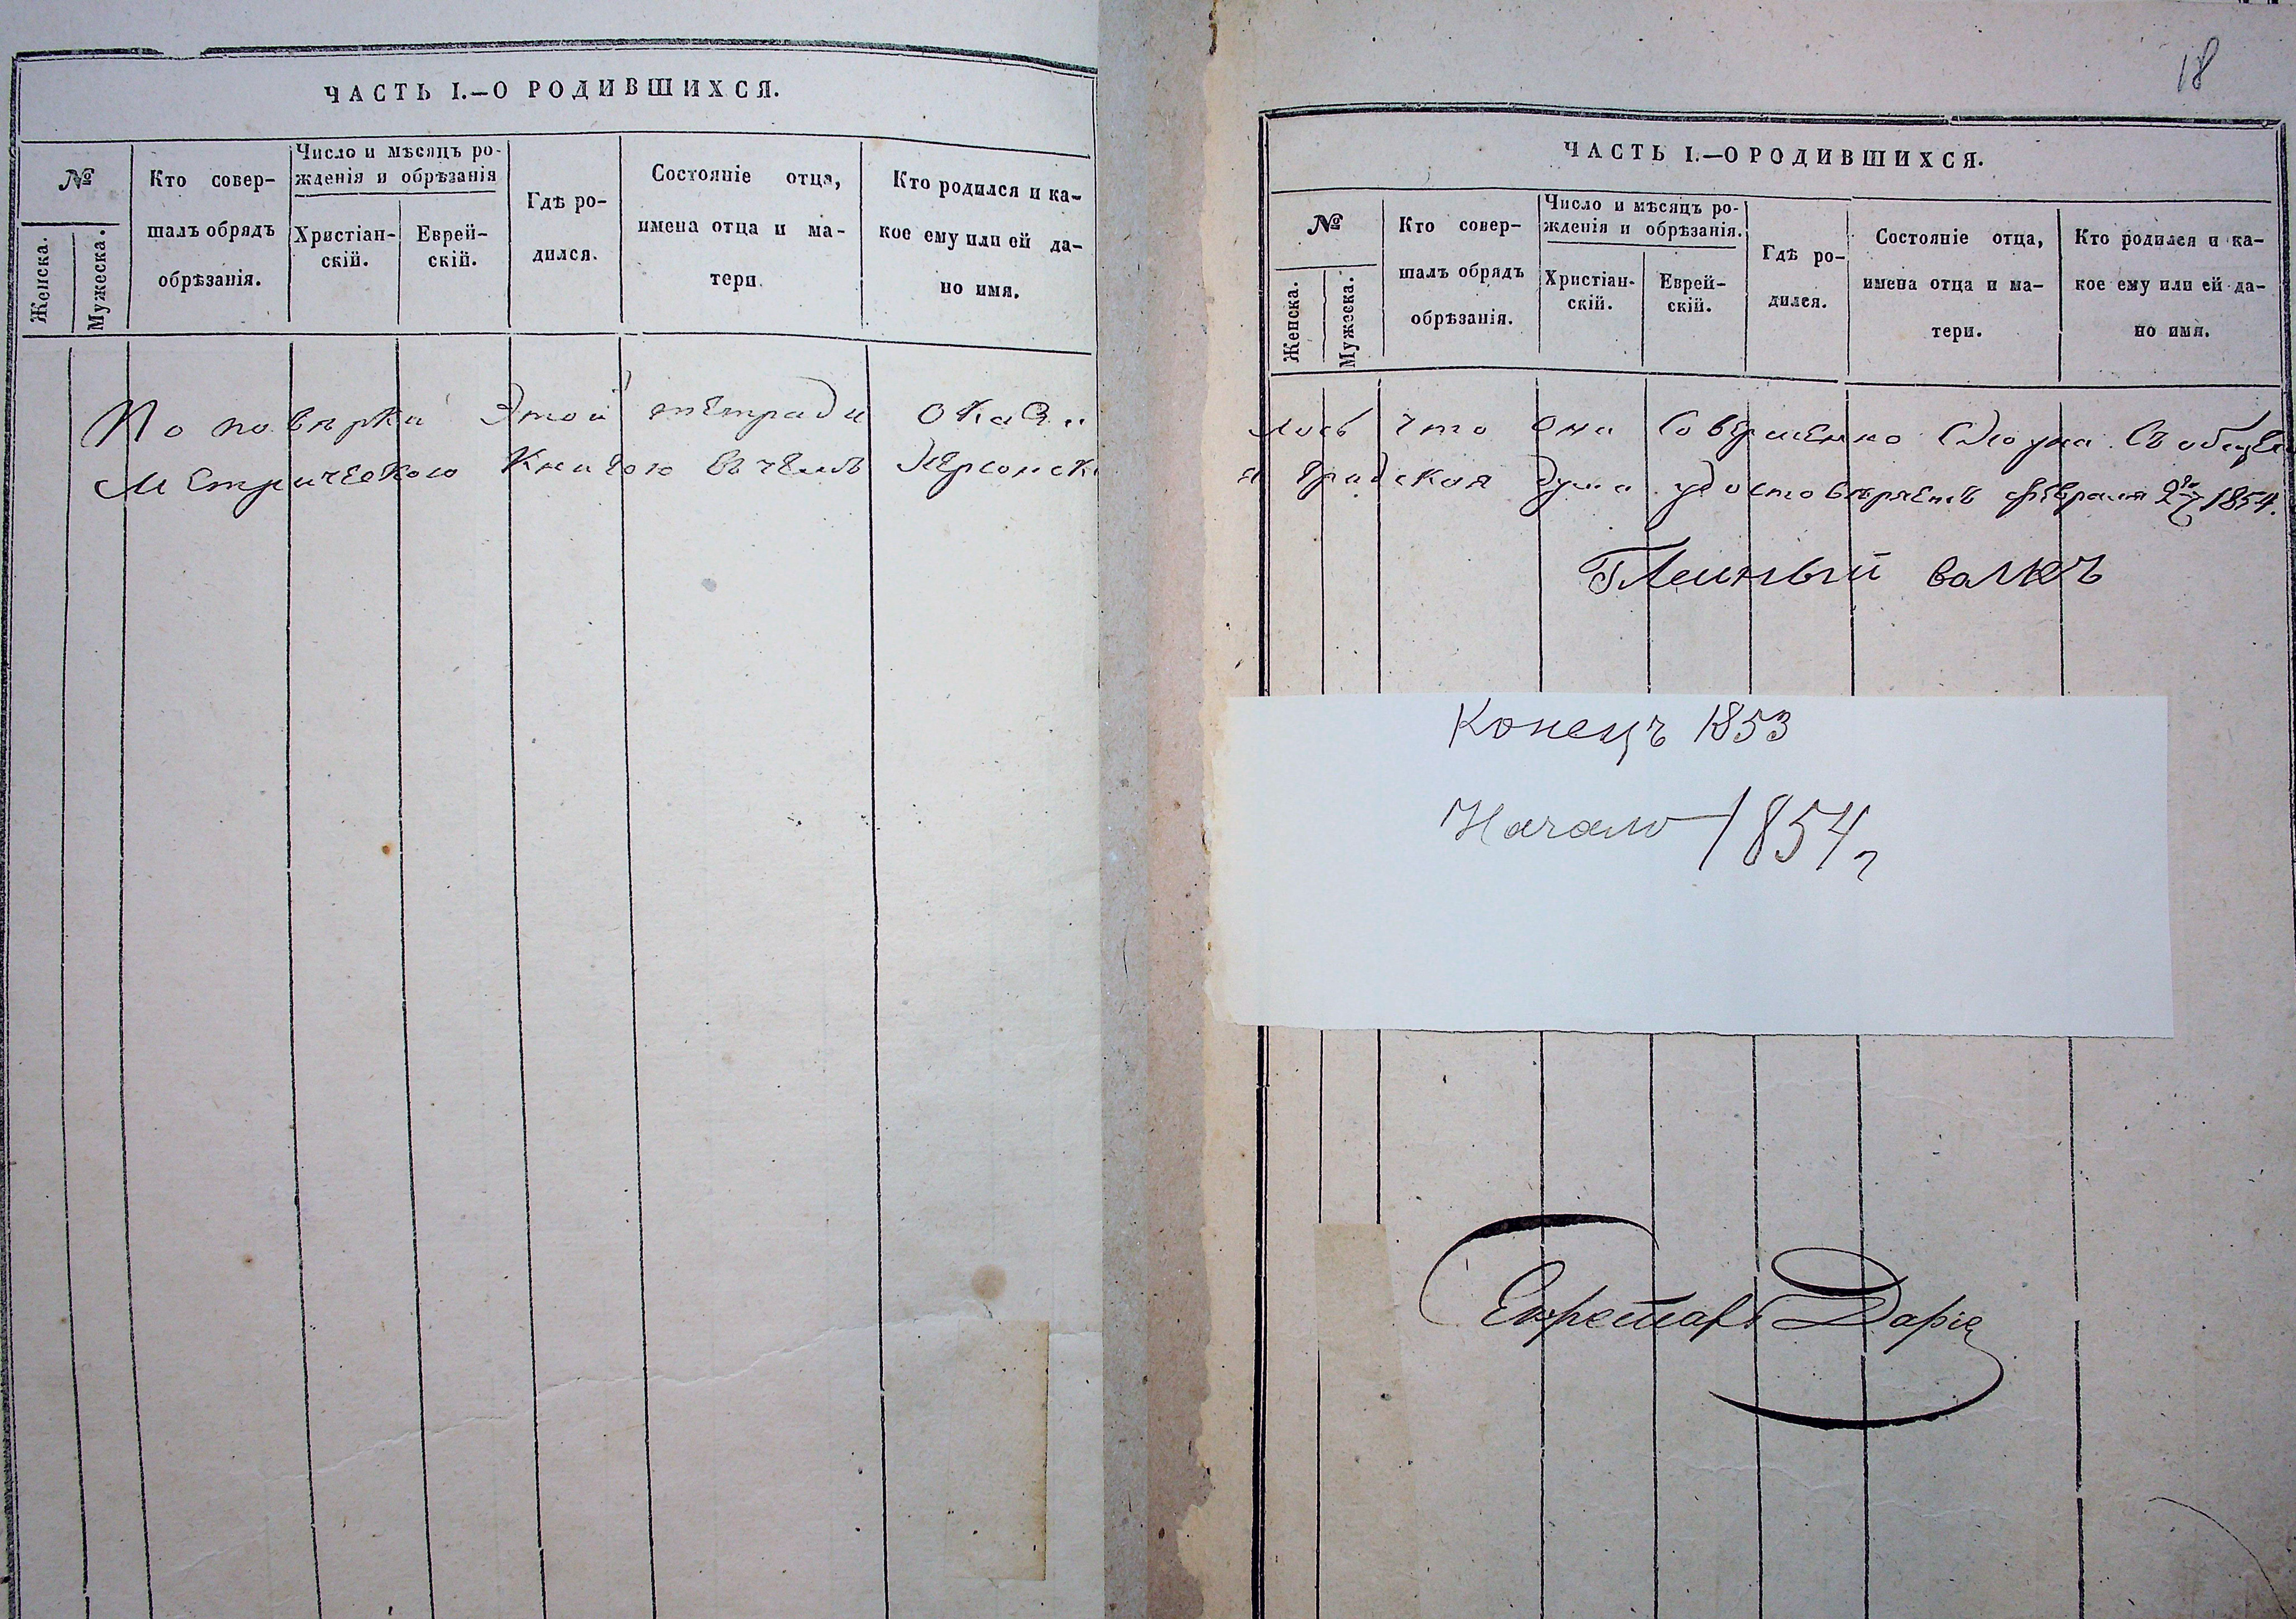 ЧАСТЬ I.—О РОДИВШИХСЯ.
№
Женска.
Мужеска.
Кто совер-
шалъ обрядъ
обрѣзанія.
Число и мѣсяцъ ро-
жденія и обрѣзанія
Христіан-
скій.
Еврей-
скій.
Гдѣ ро-
дился.
Состояніе отца,
имена отца и ма-
тери.
Кто родился и ка-
кое ему или ей да-
но имя.
По повѣрки этой тетради оказа
Метрическою Книгою въ чемъ Херсонск
18
ЧАСТЬ I.—О РОДИВШИХСЯ.
№
Женска.
Мужеска.
Кто совер-
шалъ обрядъ
обрѣзанія.
Число и мѣсяцъ ро-
жденія и обрѣзанія.
Христіан-
скій.
Еврей-
скій.
Гдѣ ро-
дился.
Состояніе отца,
имена отца и ма-
тери.
Кто родился и ка-
кое ему или ей да-
но имя.
лось что она совершенно сходна съ общею
я Градская Дума удостовѣряетъ февраля 27 1854.
Гласный
Конецъ 1853
Начало 1854 г
Секретарь